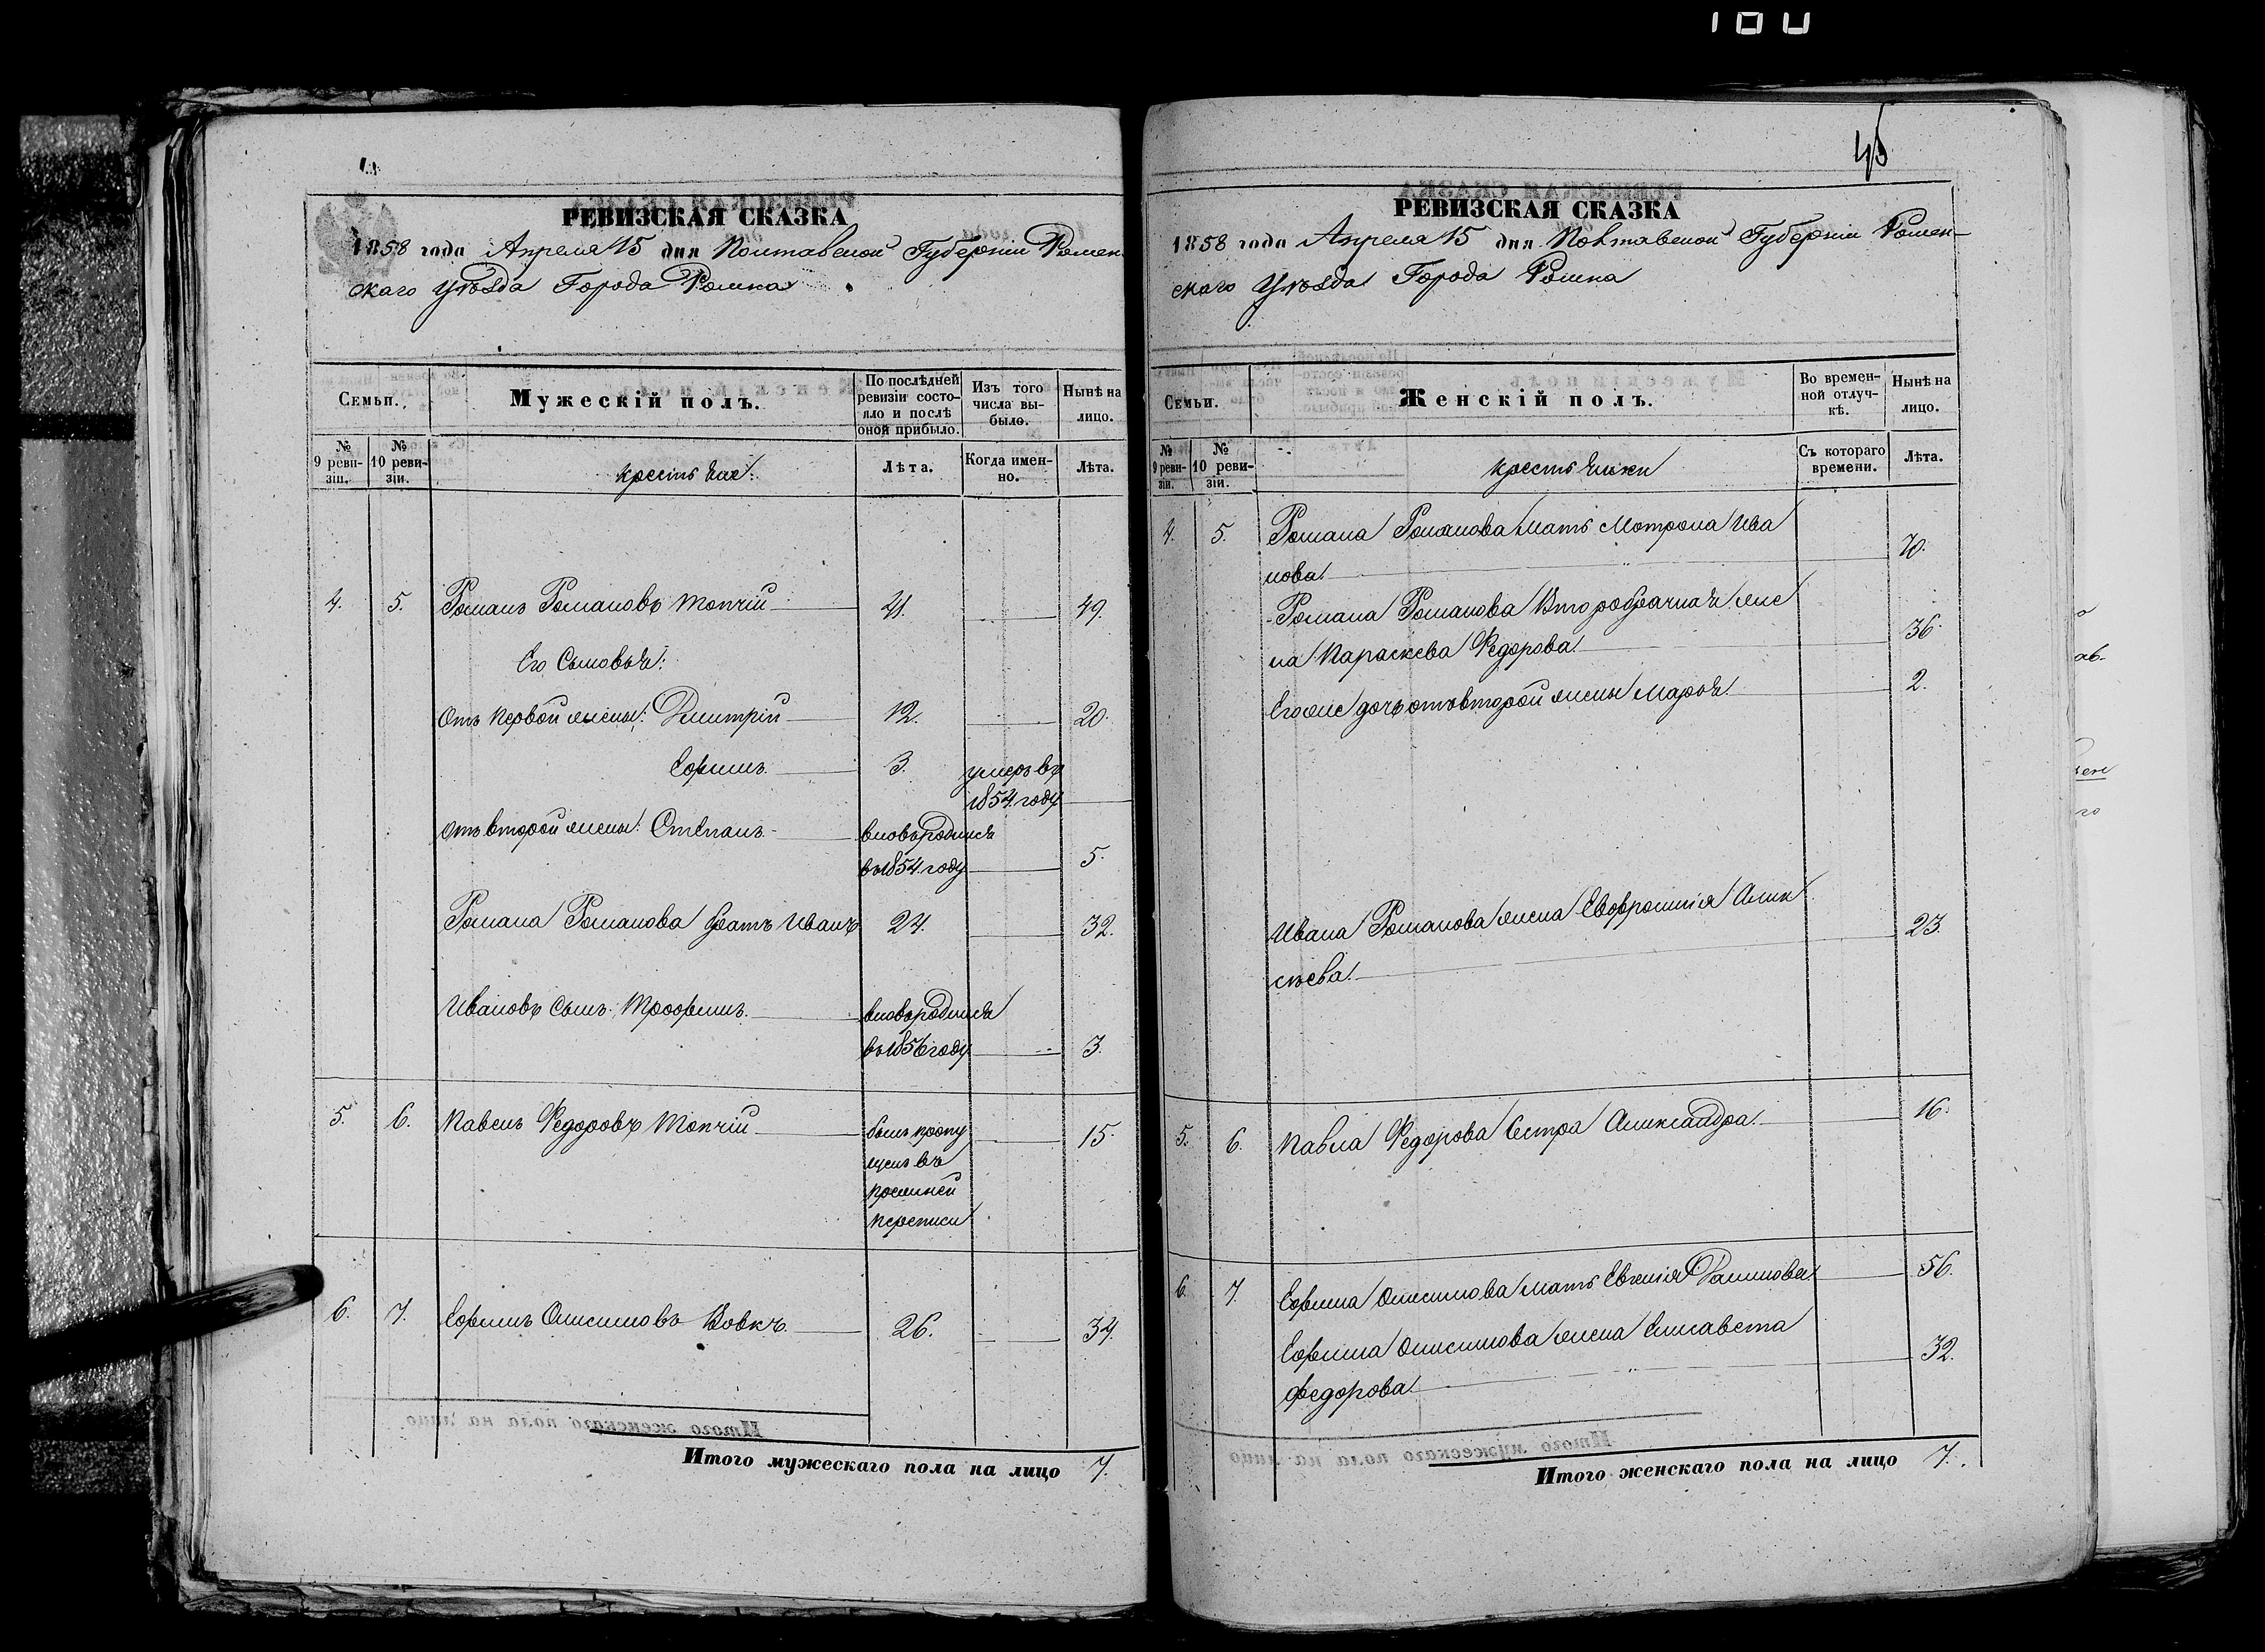 100
РЕВИЗСКАЯ СКАЗКА
1858 года Апреля 15 дня Полтавской Губерніи Ромен-
скаго Уѣзда Города Ромна
Семьи.
Мужескій полъ.
По послѣдней ревизіи состояло и послѣ оной прибыло.
Изъ того числа выбыло.
Нынѣ на лицо.
№ 9 ревизіи.
№ 10 ревизіи.
крестьяне:
Лѣта.
Когда именно.
Лѣта.
4. 5. Романъ Романовъ Топчій 41. 49.
Его Сыновья:
отъ первой жены: Дмитрій 12. 20.
Ефимъ 3. умеръ въ
1854 году
отъ второй жены: Степанъ вновь родился
въ 1854 году 5.
Романа Романова братъ Иванъ 24. 32.
Ивановъ сынъ Трофимъ вновь родился
въ 1856 году 3.
5. 6. Павелъ Федоровъ Топчій былъ пропу 15.
щенъ въ
прошлой
переписи
6. 7. Ефимъ Онисимовъ Вовкъ 26. 34.
Итого мужескаго пола на лицо 7.
45
РЕВИЗСКАЯ СКАЗКА
1858 года Апреля 15 дня Полтавской Губерніи Ромен-
скаго Уѣзда Города Ромна
Семьи.
Женскій полъ.
Во временной отлучкѣ.
Нынѣ на лицо.
№ 9 ревизіи.
№ 10 ревизіи.
крестьянки
Съ котораго времени.
Лѣта.
4. 5. Романа Романова мать Мотрона Ива
нова 70.
Романа Романова Второбрачная же
на Параскева Федорова 36.
Его же дочь отъ второй жены Марфа 2.
Ивана Романова жена Евфросинія Алек 23.
сѣева
5. 6. Павла Федорова Сестра Александра 16.
6. 7. Ефима Онисимова мать Евгенія 56.
Ефима Онисимова жена Елисавета 32.
Федорова
Итого женскаго пола на лицо 7.